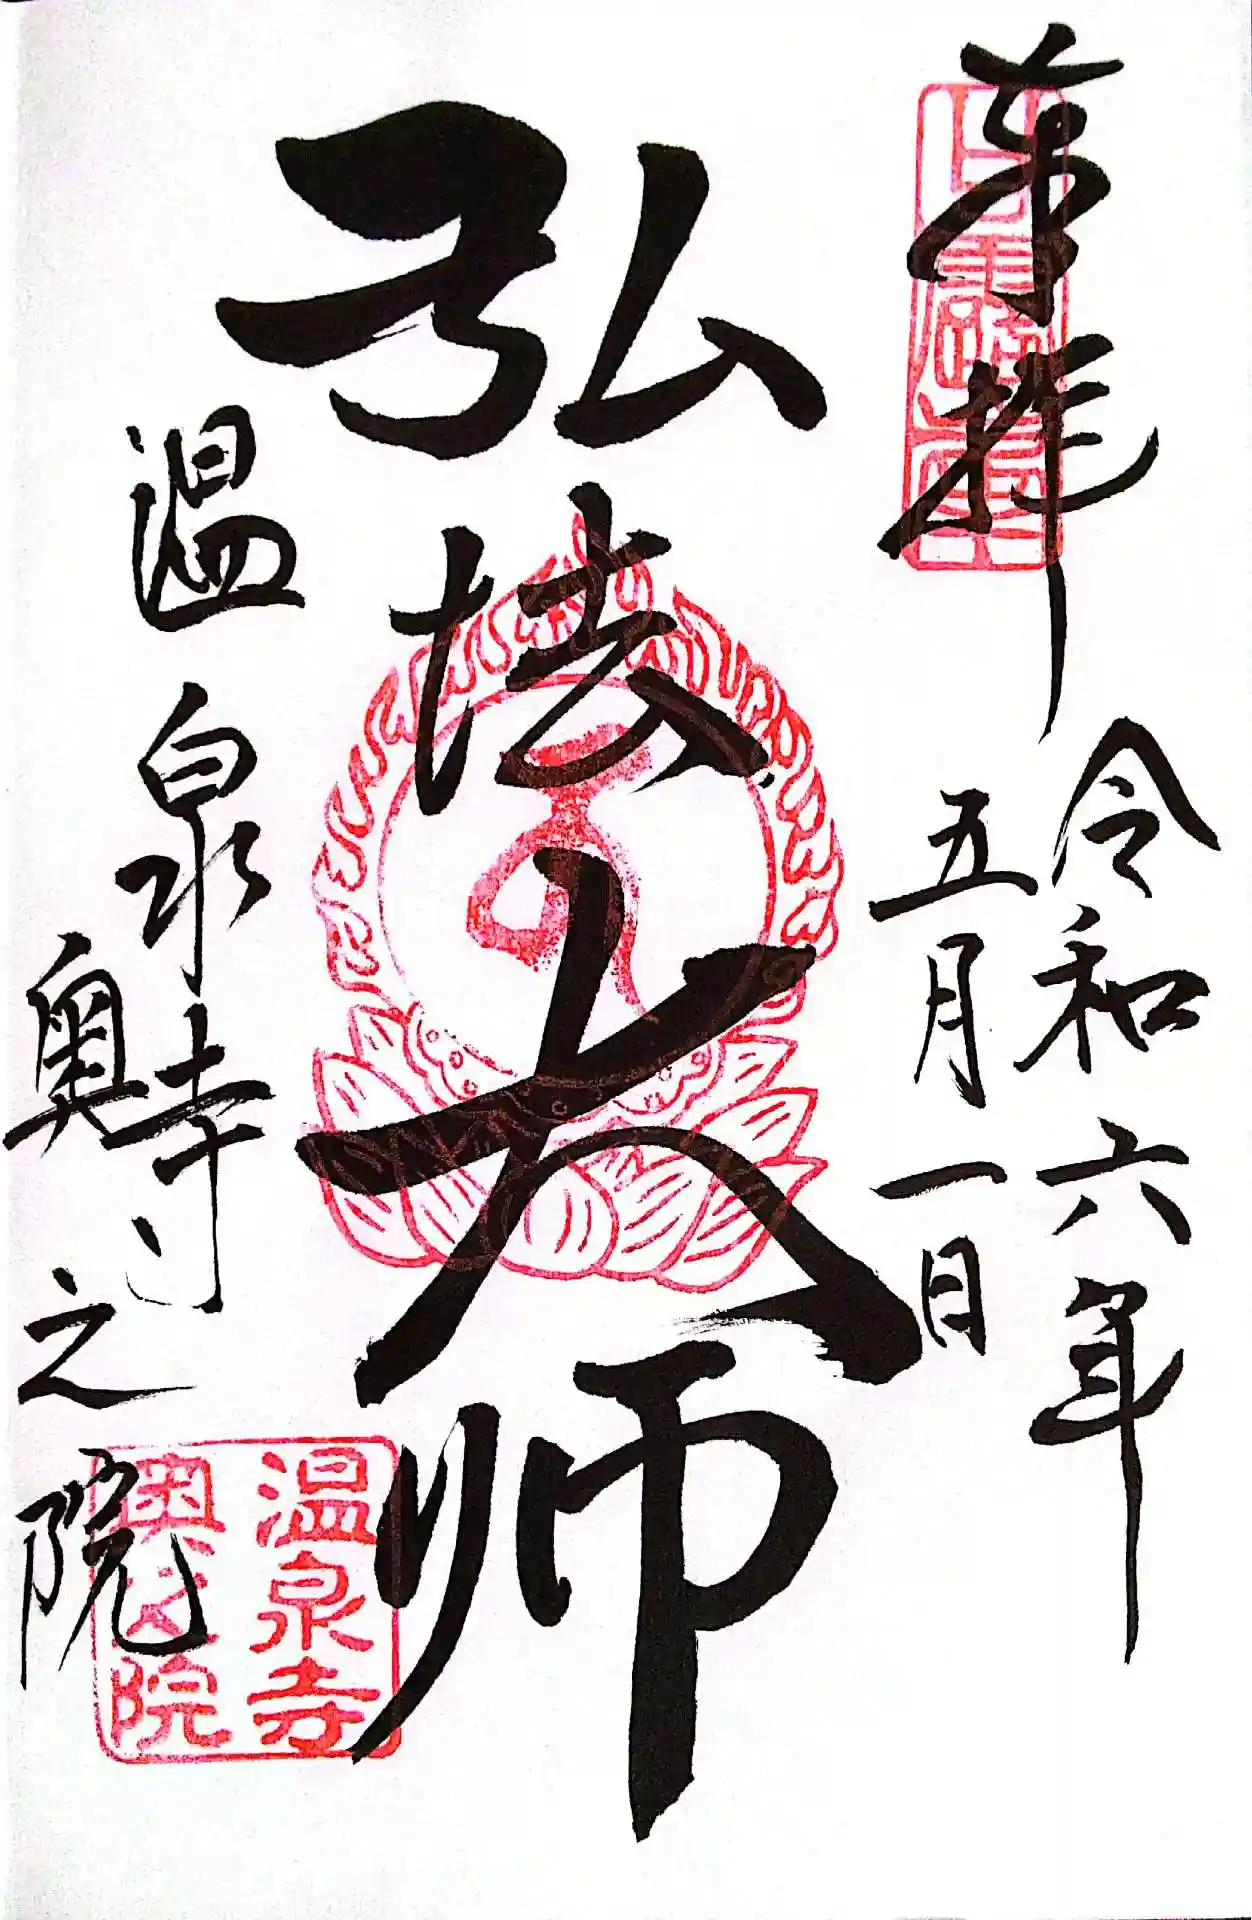 奉拝
令和六年
五月一日
弘法大師
温泉寺
奥之院
温泉寺
奥之院